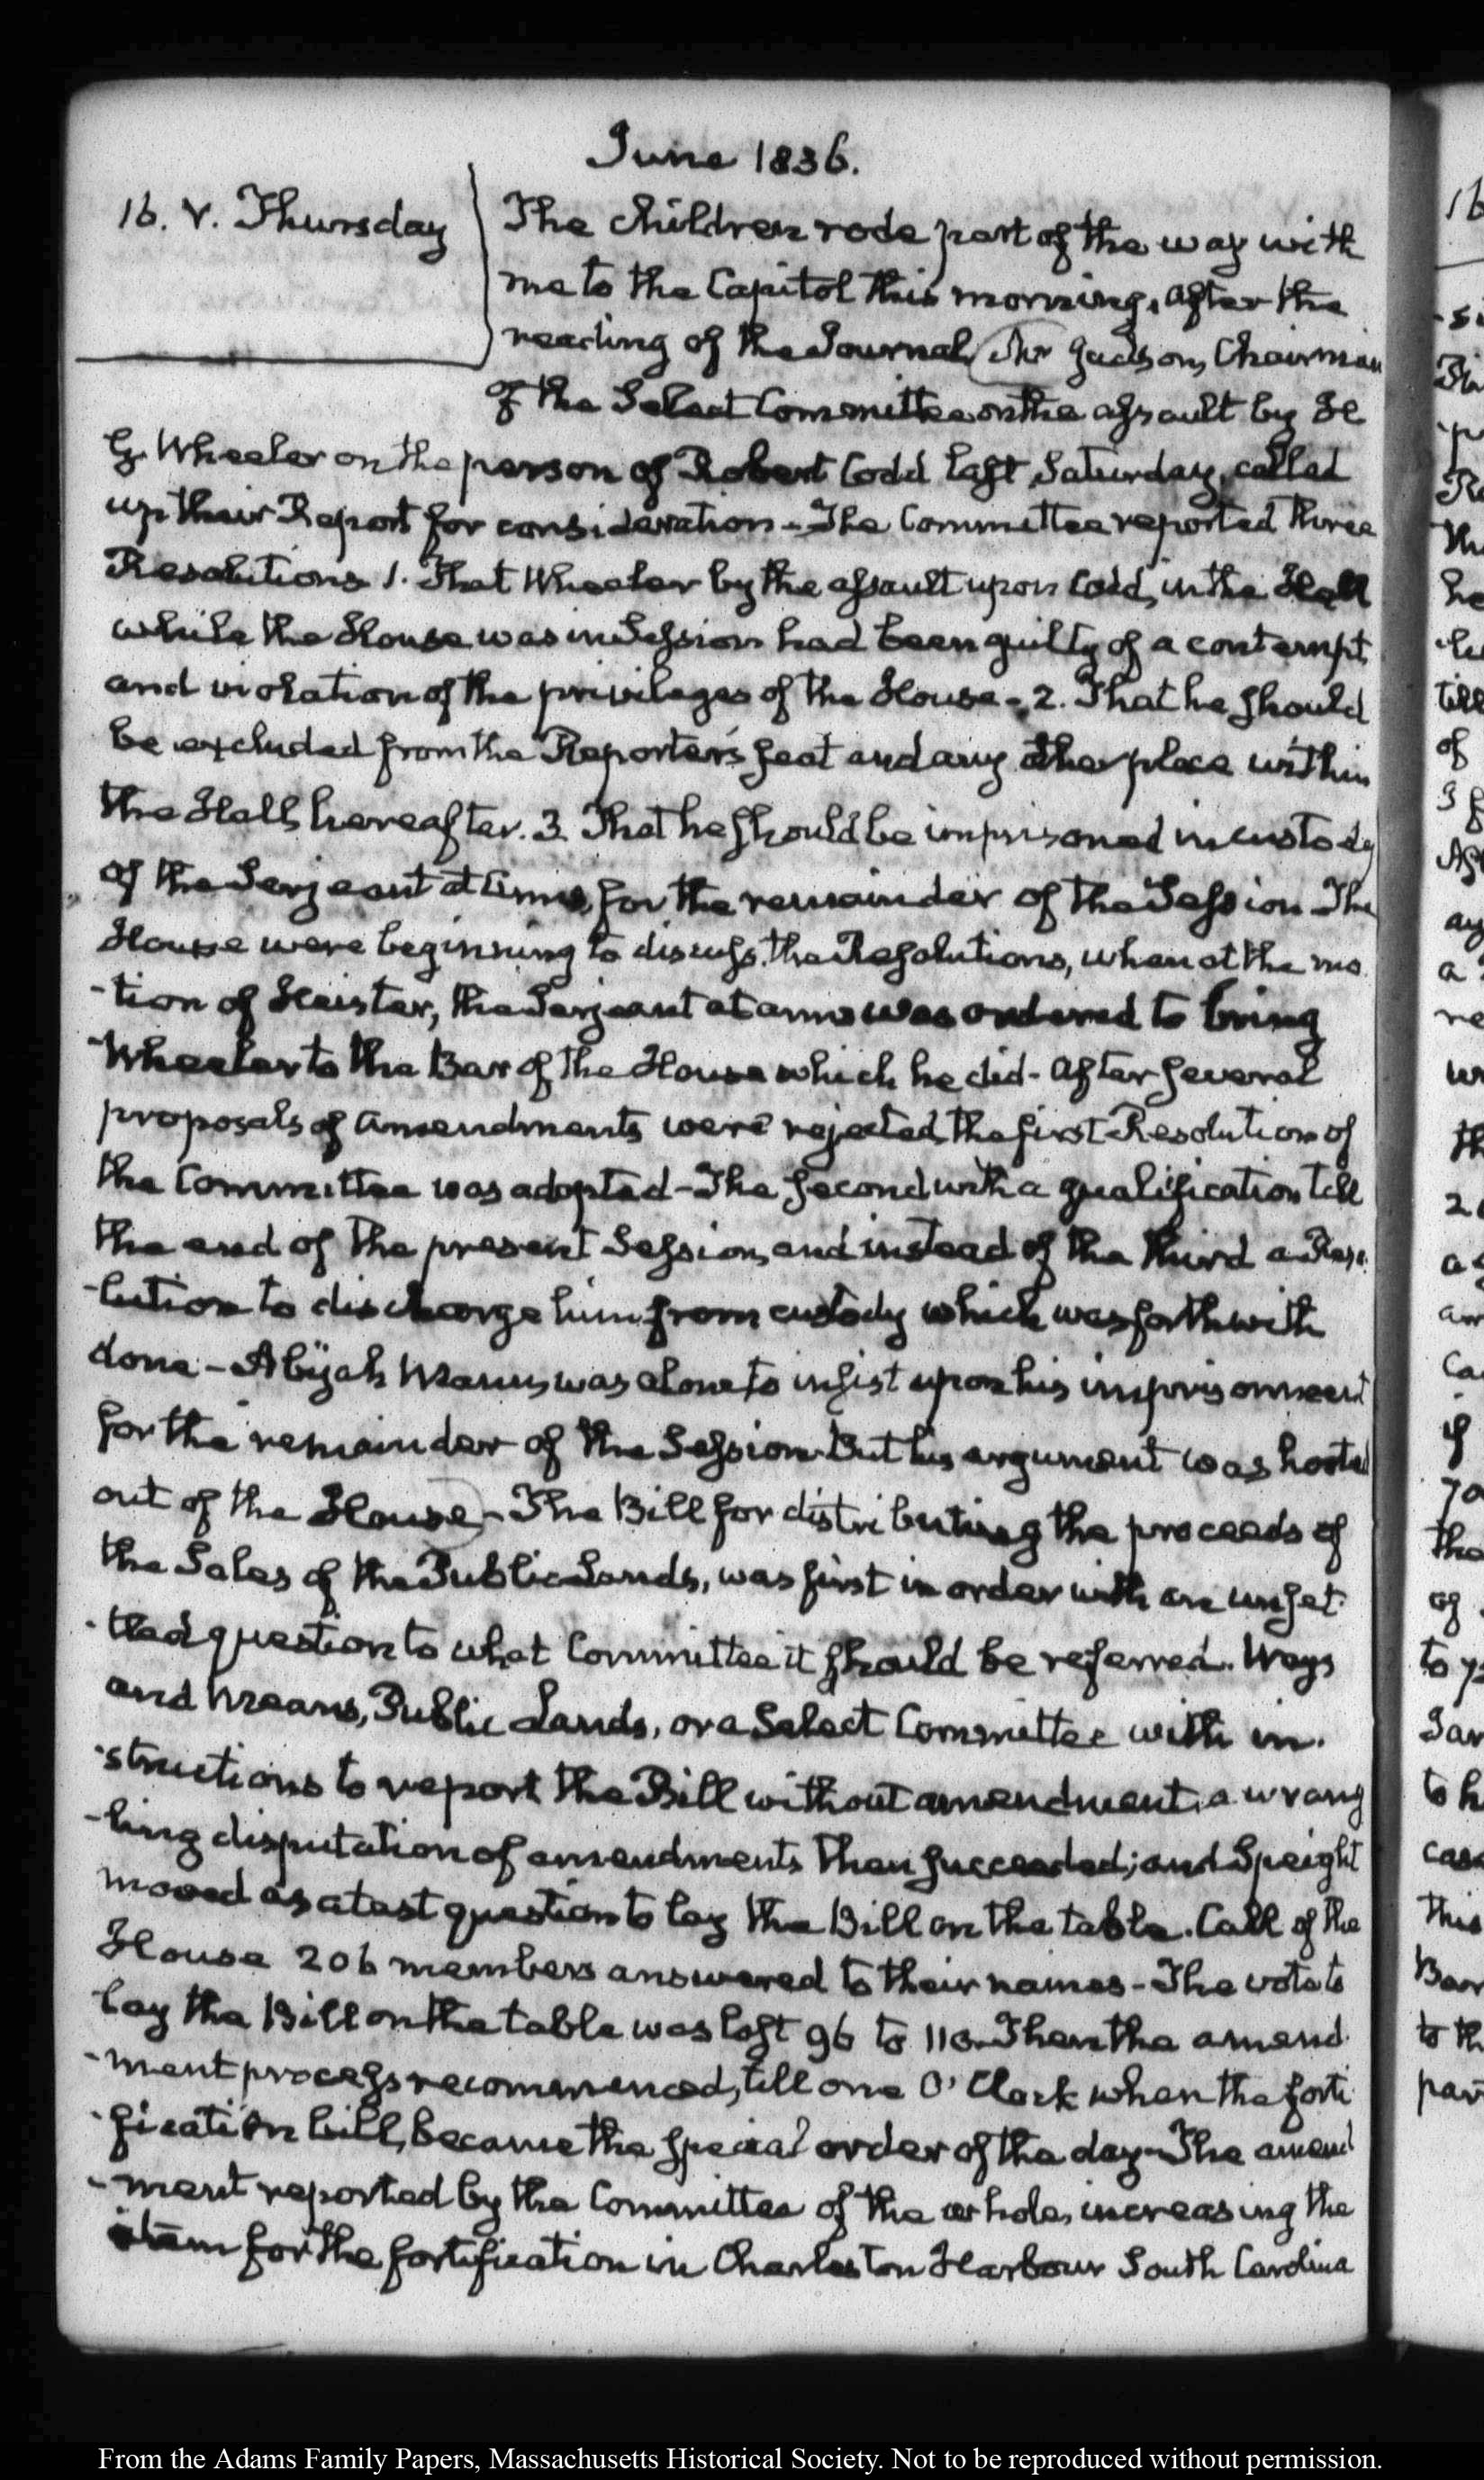 June 1836.
16. V. Thursday
The children rode part of the way with
me to the Capitol this morning. After the
reading of the Journal, Mr Judson, Chairman
of the Select Committee on the assault by H
G. Wheeler on the person of Robert Codd last Saturday, called
up their Report for consideration - The Committee reported three
Resolutions 1. That Wheeler by the assault upon Codd, in the Hall
while the House was in Session had been guilty of a contempt
and violation of the privileges of the House - 2. That he should
be excluded from the Reporter's seat and any other place within
the Hall, hereafter. 3. That he should be imprisoned in custody
of the Serjeant at Arms, for the remainder of the Session The
House were beginning to discuss the Resolutions, when at the mo
-tion of Heister, the Serjeant at arms was ordered to bring
Wheeler to the Bar of the House which he did - After several
proposals of amendments were rejected, the first Resolution of
the Committee was adopted - The second with a qualification till
the end of the present Session, and instead of the third a Reso
-lution to discharge him from custody which was forthwith
done - Abijah Mann, was alone to insist upon his imprisonment
for the remainder of the Session But his argument was hooted
out of the House - The Bill for distributing the proceeds of
the Sales of the Public Lands, was first in order with an unset
-tled question to what Committee it should be referred. Ways
and Means, Public Lands, or a Select Committee with in-
-structions to report the Bill without amendment, a wrang
-ling disputation of amendments then succeeded; and Speight
moved as a test question to lay the Bill on the table. Call of the
House 206 members answered to their names - The vote to
lay the Bill on the table was lost 96 to 113. Then the amend
-ment process recommenced, till one O' Clock when the forti
-fication bill, became the special order of the day - The amend
-ment reported by the Committee of the whole, increasing the
item for the fortification in Charleston Harbour South Carolina
From the Adams Family Papers, Massachusetts Historical Society. Not to be reproduced without permission.